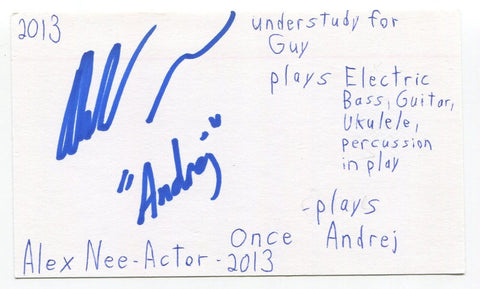 2013
understudy for
Guy
plays Electric
Bass, Guitar,
Ukulele,
percussion
in play
"Andrej"
-plays
Andrej
Once
Alex Nee-Actor-2013